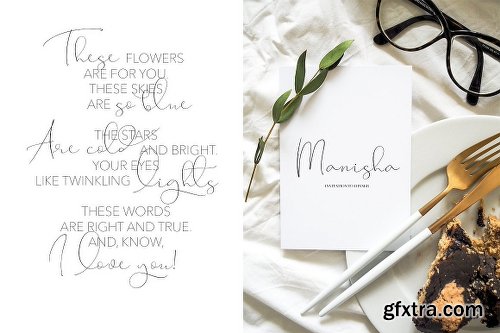 These FLOWERS
ARE FOR YOU
THESE SKIES
ARE so blue
THE STARS
Are cold AND BRIGHT.
YOUR EYES
LIKE TWINKLING lights
THESE WORDS
ARE RIGHT AND TRUE.
AND, KNOW,
I love you!
Manisha
gfxtra.com